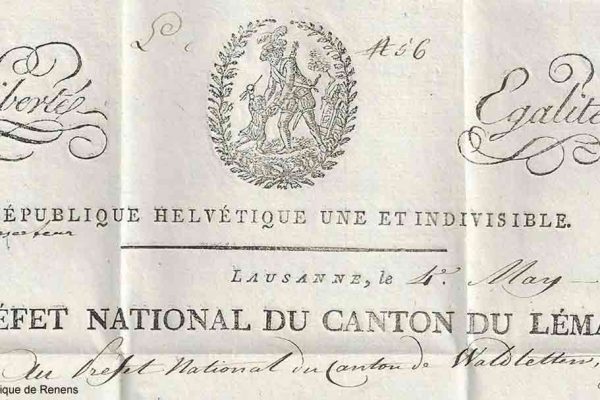 L. #56
iberté Egalité
ÉPUBLIQUE HELVÉTIQUE UNE ET INDIVISIBLE.
LAUSANNE, le 4e. May
ÉFET NATIONAL DU CANTON DU LÉMA
au Prefet National du Canton de Waldstetten,
ique de Renens